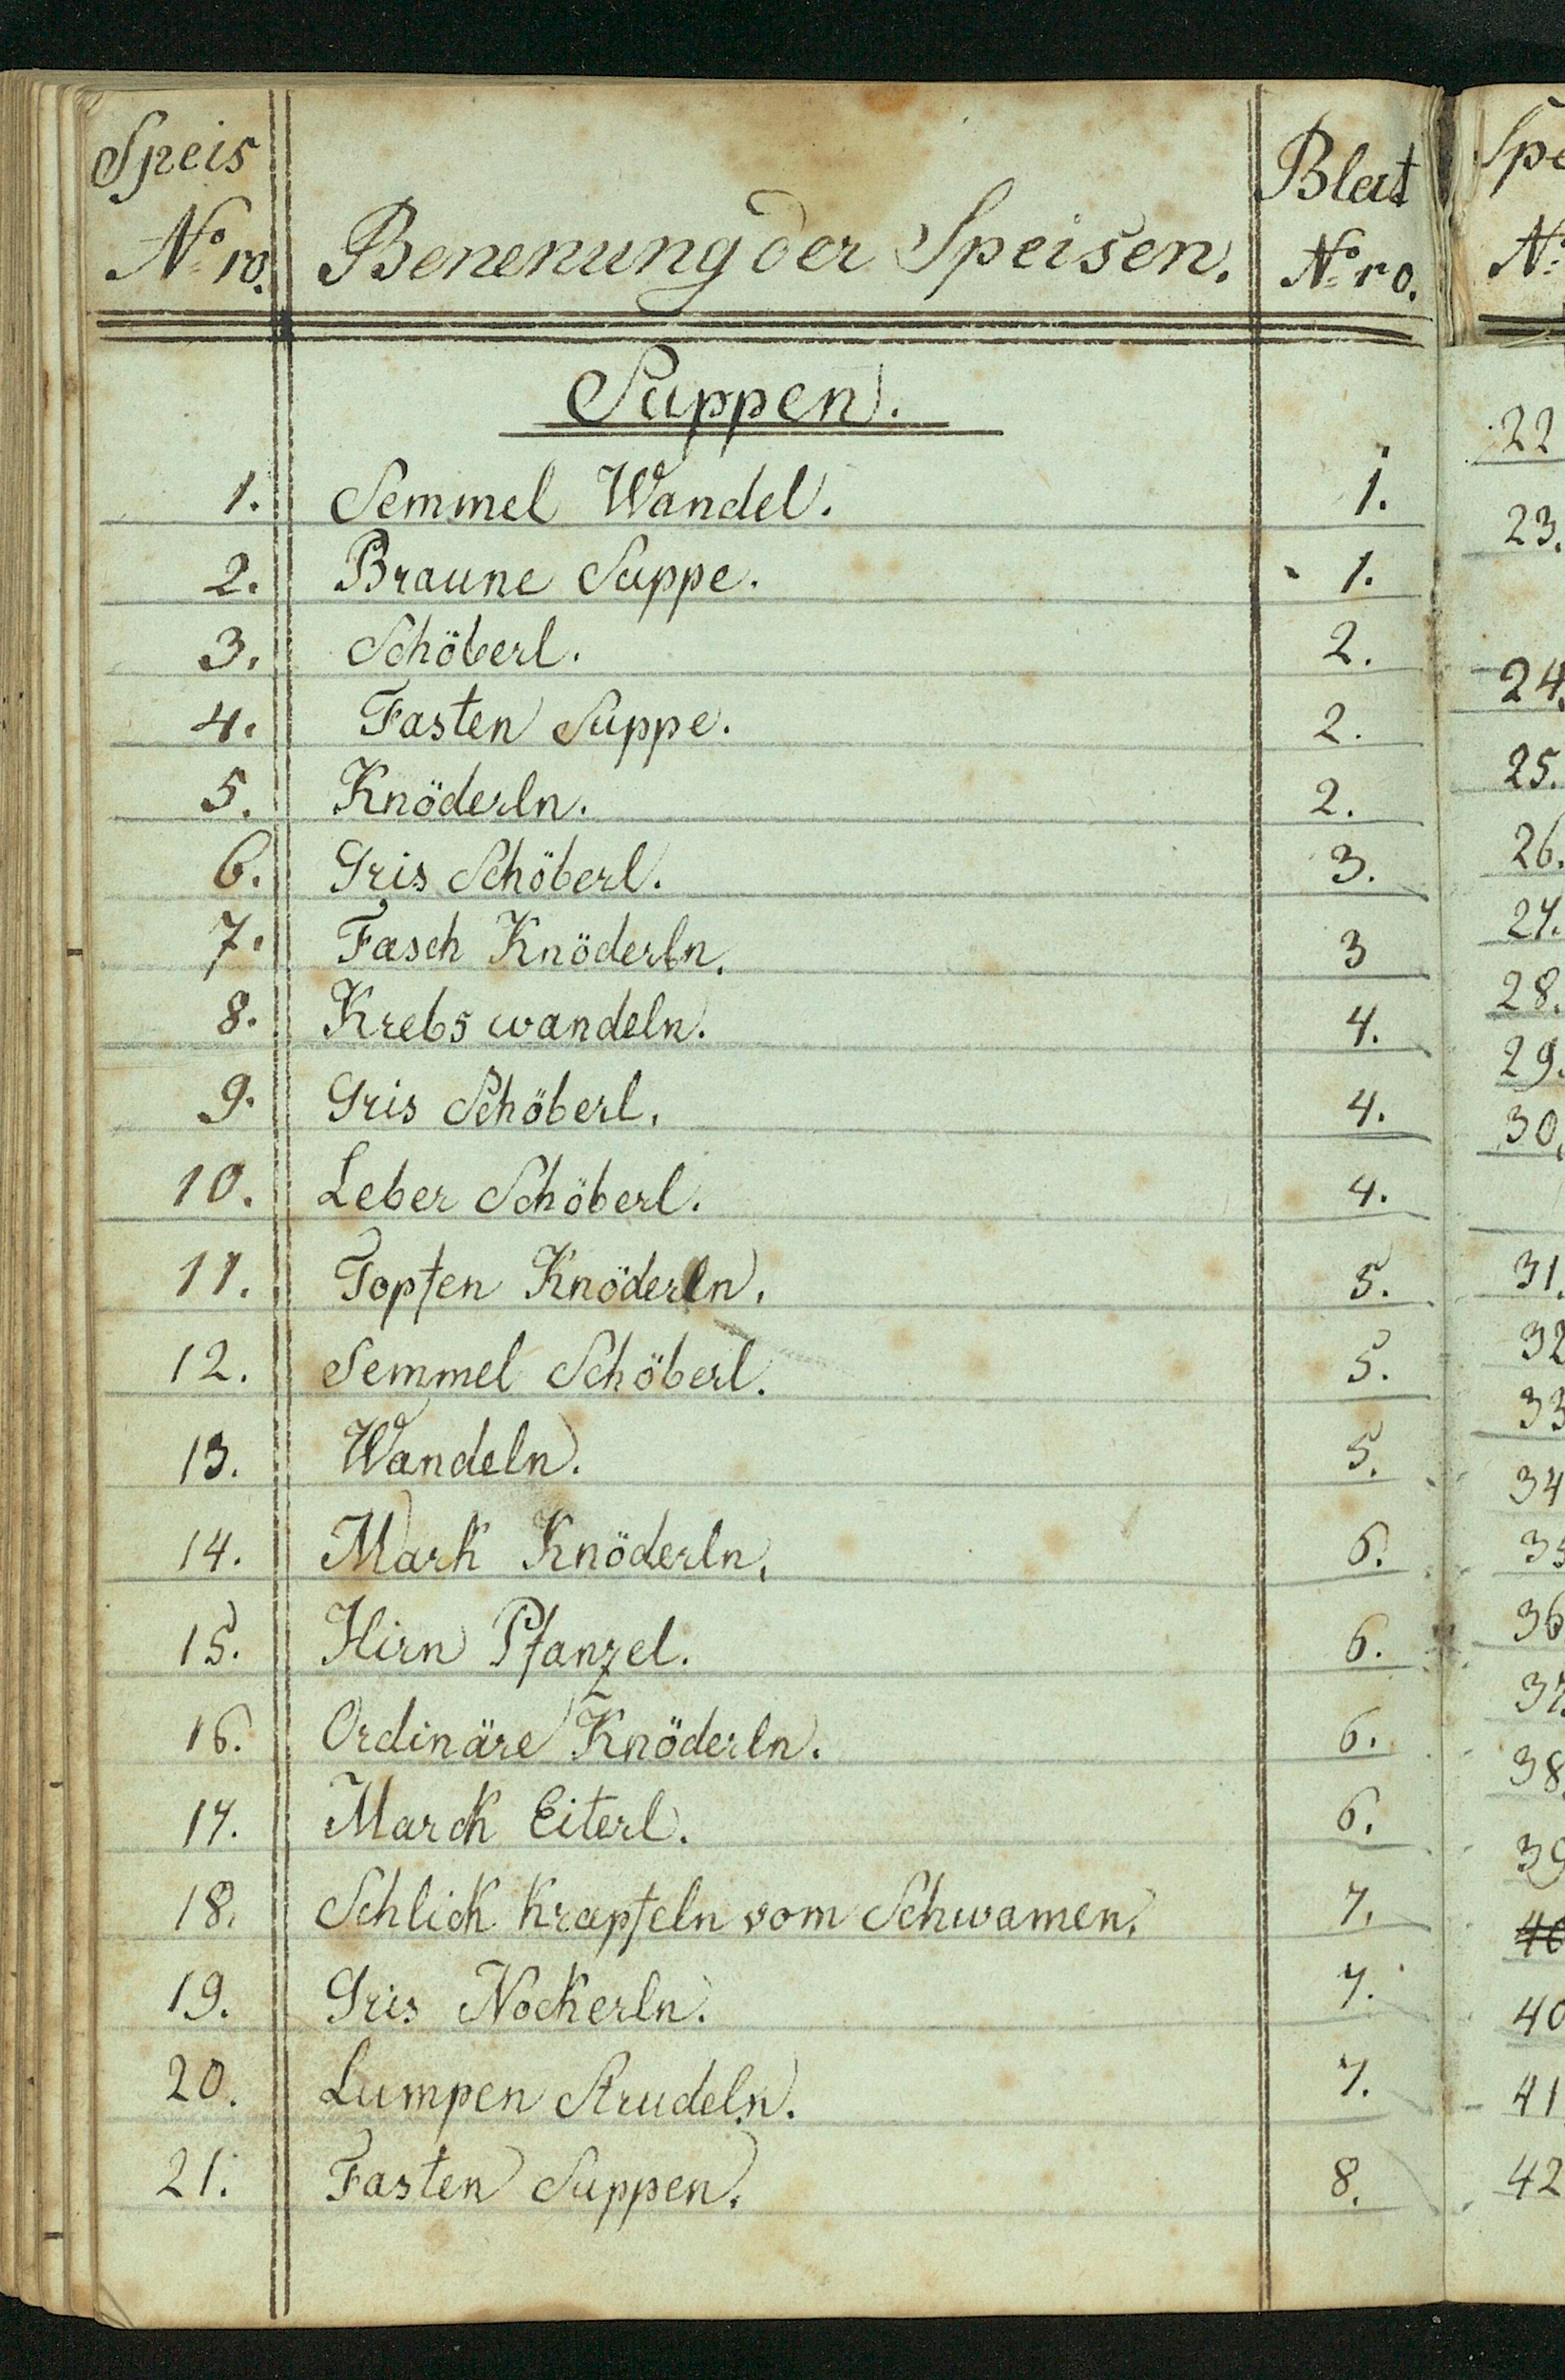 Speis Blat Spe
No. ro. Benenung der Speisen. No. ro. No.
Suppen.
1. Semmel Wandel. 1.
2. Braune Suppe. 1.
3. Schöberl. 2.
4. Fasten Suppe. 2.
5. Knöderln. 2.
6. Gris Schöberl. 3.
7. Fasch Knöderln. 3
8. Krebs wandeln. 4.
9. Gris Schöberl. 4.
10. Leber Schöberl. 4.
11. Topfen Knöderln. 5.
12. Semmel Schöberl. 5.
13. Wandeln. 5.
14. Mark Knöderln. 6.
15. Hirn Pfanzel. 6.
16. Ordinäre Knöderln. 6.
17. Marck Eiterl. 6.
18. Schlick Krapfeln vom Schwamen. 7.
19. Gris Nockerln. 7.
20. Lumpen Strudeln. 7.
21. Fasten Suppen. 8.
22
23.
24.
25.
26.
27.
28.
29.
30.
31.
32
33
34
35
36
37.
38.
39
40
40
41
42